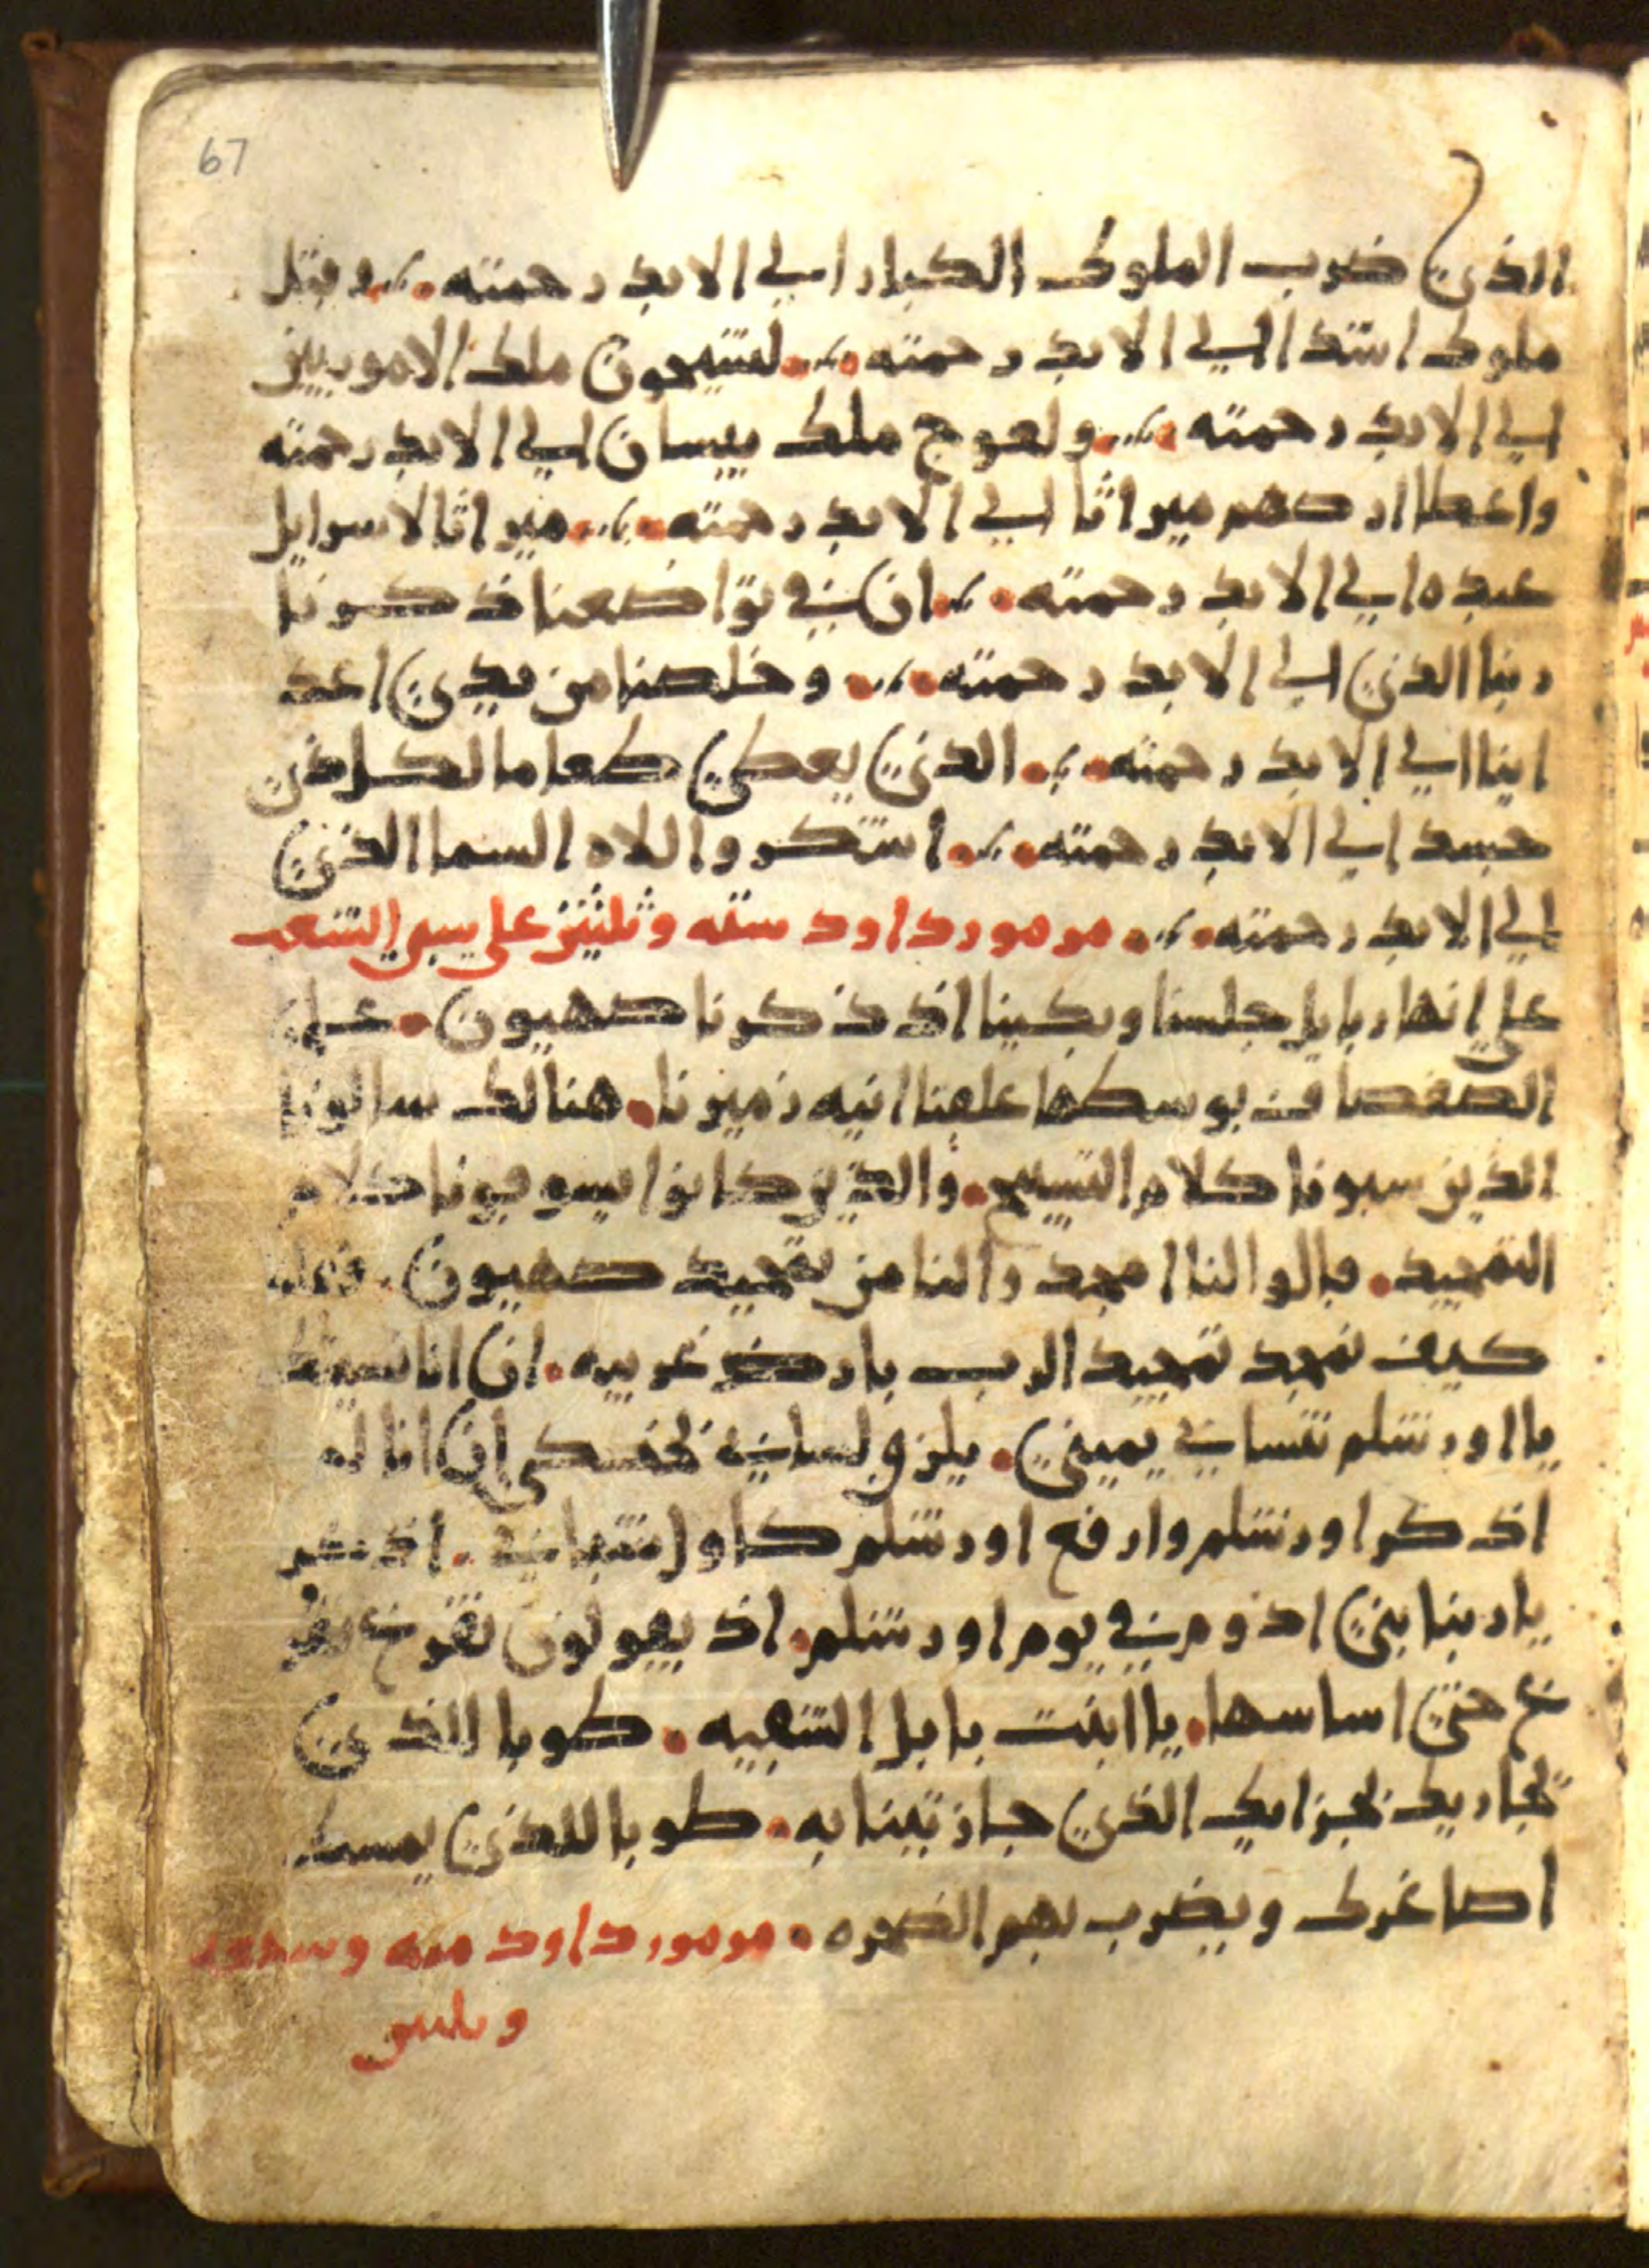 67
الذي ضرب الملوك الكبار الي الابد رحمته وقتل
ملوك اشدا الي الابد رحمته لشيحون ملك الاموريين
الي الابد رحمته ولعوج ملك بيسان الي الابد رحمته
واعطا ارضهم ميراثا الي الابد رحمته ميراثا لاسرايل
عبده الي الابد رحمته ان في تواضعنا ذكرنا
ربنا الذي الي الابد رحمته وخلصنا من يدي اعد
اينا الي الابد رحمته الذي يعطي طعاما لكل ذي
جسد الي الابد رحمته اشكروا اللاه السما الذي
الي الابد رحمته مزمور داود سته وثلثين علي سبي الشعب
علي انهار بابل جلسنا وبكينا اذ ذكرنا صهيون علي
الصفصاف بوسطها علقنا انيه زميرنا هنالك سالونا
الذين سبونا كلام التسبيح والذين كانوا يسوقونا كلام
التمجيد قالوا لنا امجدوا لنا من تمجيد صهيون
كيف نمجد تمجيد الرب بارض غريبه ان انا نسيتك
يا اورشلم تنساني يميني يلزق لساني بحنكي ان انا لم
اذكر اورشلم وارفع اورشلم كاول شباني اذكر
يا ربنا بني اذوم في يوم اورشلم اذ يقولون نفرغ نفر
غ حتي اساسها يا ابنت بابل الشقيه طوبا للذي
يجاريك بجزايك الذي جازيتينا به طوبا للذي يمسك
اصاغرك ويضرب بهم الصخره مزمور داود ميه وسبعه
وثلثين